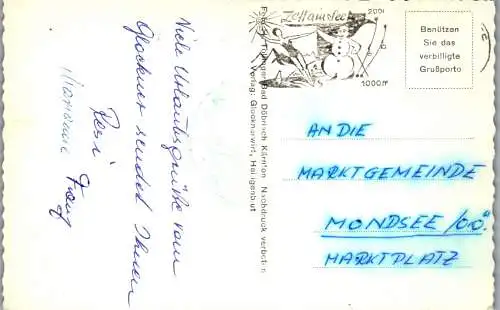 Viele Urlaubsgrüße vom
Glockner sendet Ihnen
Resi
Marianne Franz
Verlag: Glocknerwirt, Heiligenblut
Bad Döbriach Kärnten. Nachdruck verboten
Zell am See
2001
1000 m
Benützen
Sie das
verbilligte
Grußporto
AN DIE
MARKTGEMEINDE
MONDSEE /OÖ.
MARKTPLATZ